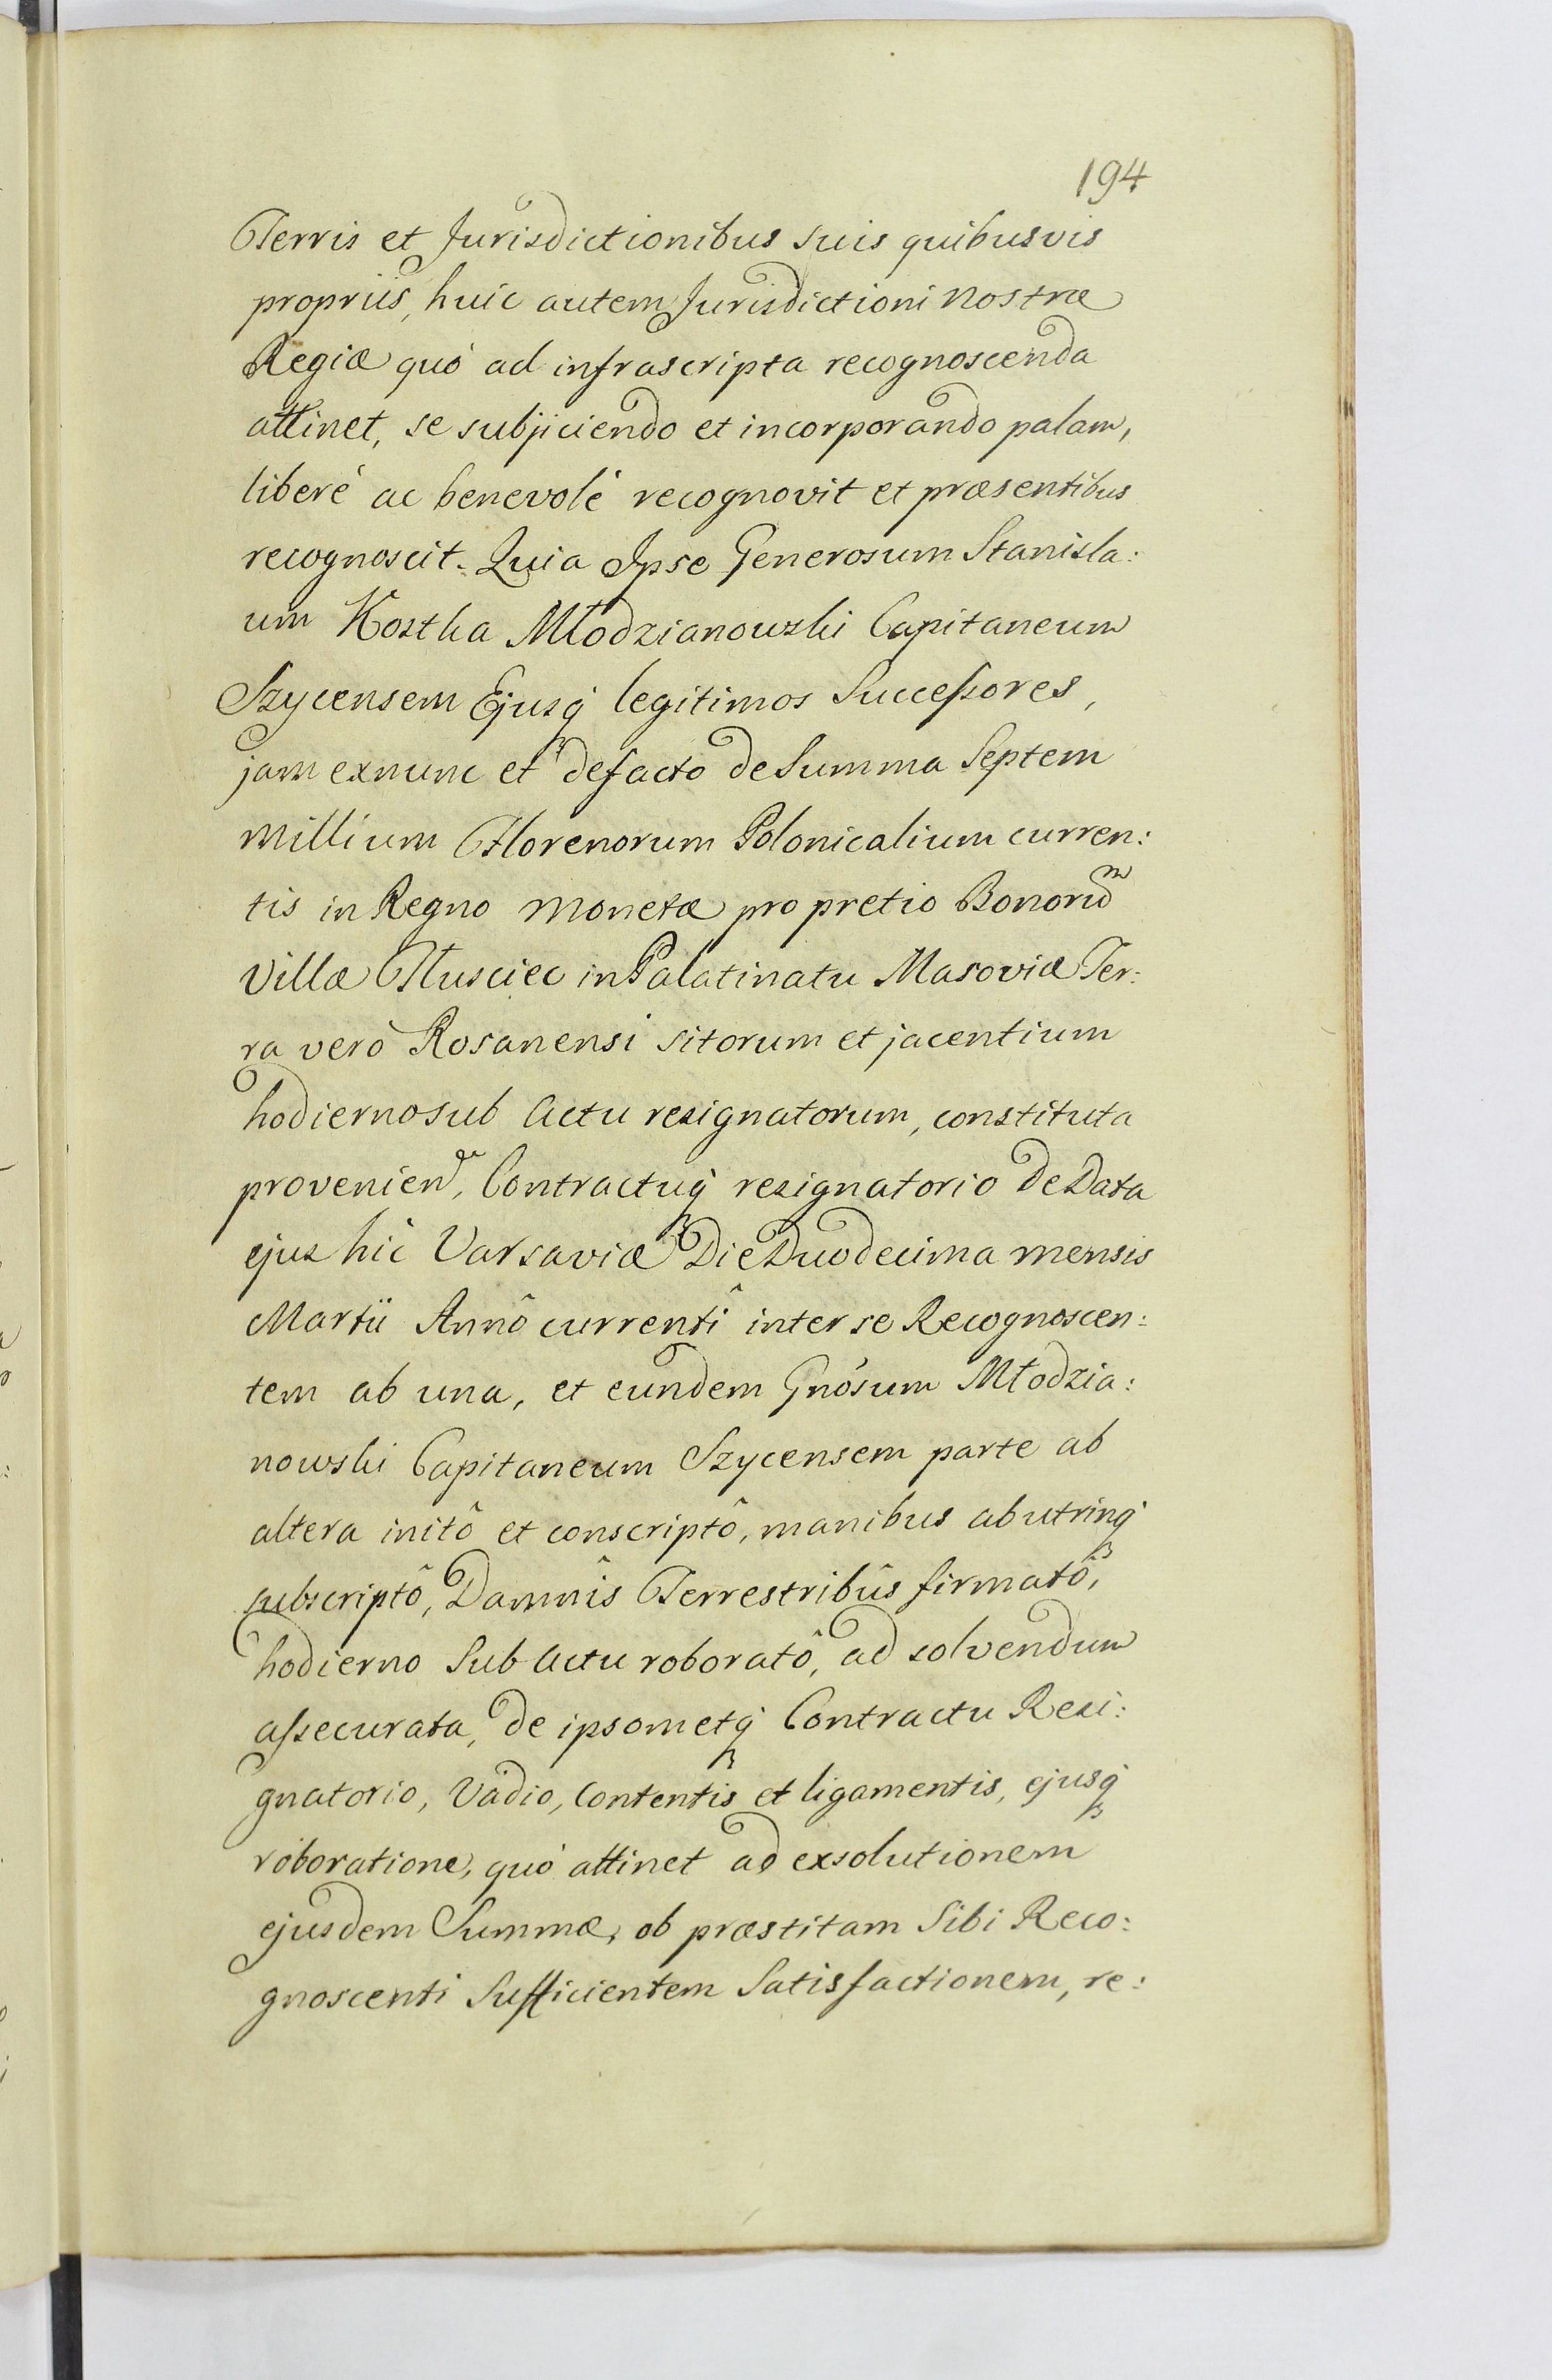 194
Terris et Jurisdictionibus suis quibusvis
propriis, huic autem Jurisdictioni nostræ
Regiæ quó ad infrascripta recognoscenda
attinet, se subjiciendo et incorporando palam,
liberé ac benevolé recognovit et præsentibus
recognoscit. Quia Ipse Generosum Stanisla:
um Kostka Młodzianowski Capitaneum
Szycensem Ejusq́ legitimos Successores,
jam exnunc et defacto de Summa Septem
millium Florenorum Polonicalium curren:
tis in Regno monetæ pro pretio Bonorum
Villæ Tłusciec in Palatinatu Masoviæ Ter:
ra veró Rosanensi sitorum et jacentium
hodierno sub Actu resignatorum, constituta
provenien̄de, Contractuq́ resignatorio de Data
ejus hic Varsaviæ Die Duodecima mensis
Martii Annô currentî inter se Recognoscen:
tem ab una, et eundem Gnósum Młodzia:
nowski Capitaneum Szycensem parte ab
altera initô et conscriptô, manibus abutrinq́
subscriptô, Damnîs Terrestribûs firmatô,
hodierno Sub Actu roboratô, ad solvendum
assecurata, de ipsometq́ Contractu Resi:
gnatorio, Vadio, Contentis et ligamentis, ejusq́
roboratione, quó attinet ad exsolutionem
ejusdem Summæ, ob præstitam Sibi Reco:
gnoscenti Sufficientem Satisfactionem, re: